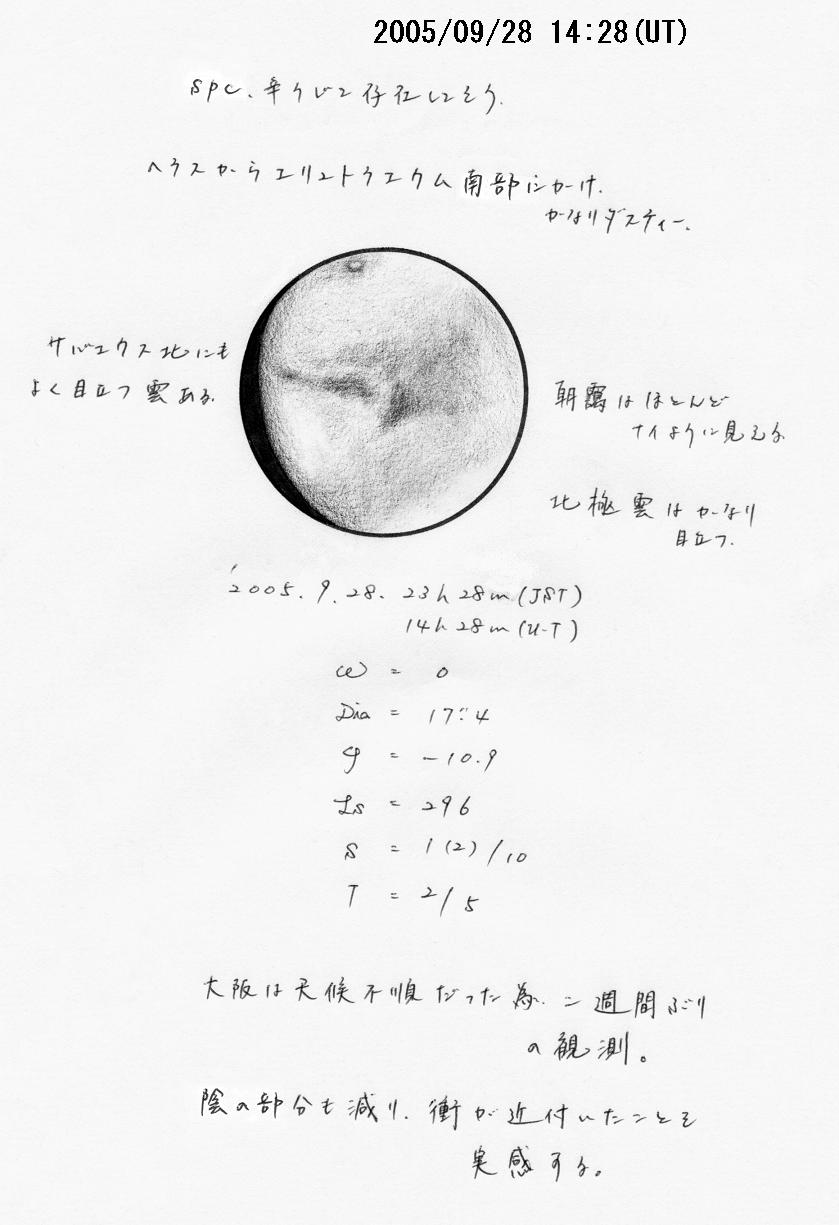 2005/09/28 14:28(UT)
spc、辛うじて存在してそう。
ヘラスからエリュトラエウム南部にかけ、
かなりダスティー。
サバエウス北にも
よく目立つ雲ある。
朝靄はほとんど
ナイように見える
北極雲はかなり
目立つ.
'2005. 9. 28. 23h 28m (JST)
14h 28m (U.T)
ω = 0
Dia = 17."4
φ = -10.9
Ls = 296
S = 1(2)/10
T = 2/5
大阪は天候不順だった為、二週間ぶり
の観測。
陰の部分も減り、衝が近付いたことを
実感する。